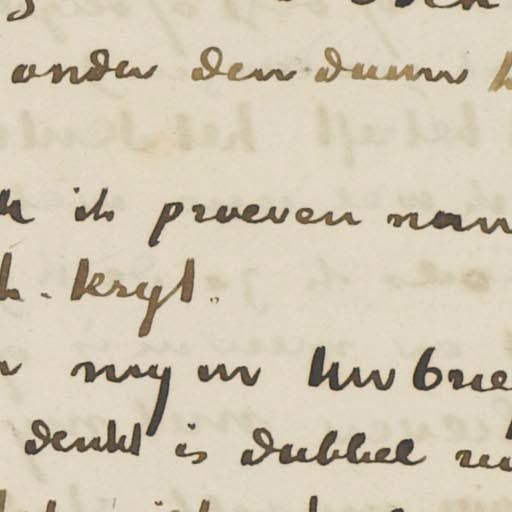 onder den duim
ik proeven nam
kryt.
nog in Uw brie
denkt is dubbel